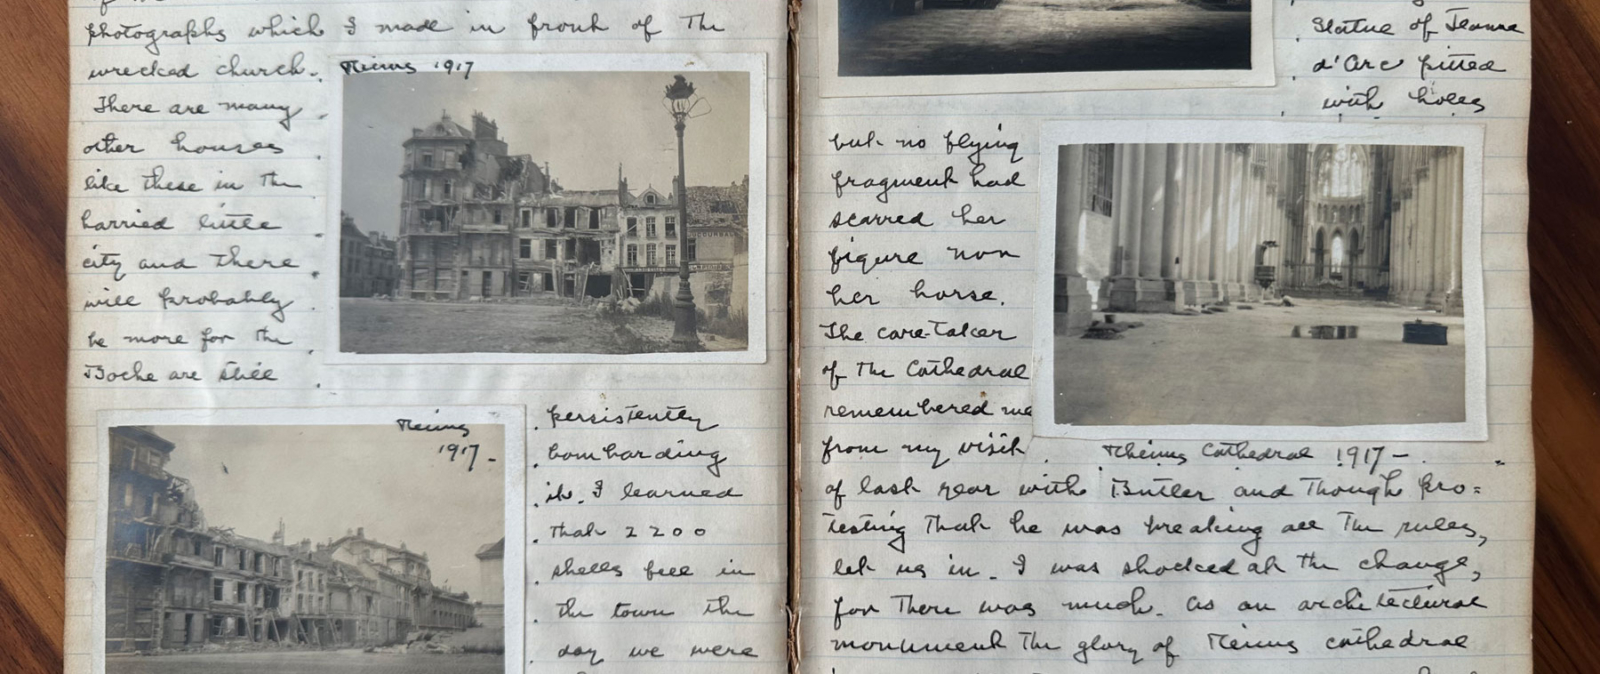 photographs which I made in front of the
wrecked church.
Rheims 1917
There are many
other houses
like these in the
harried little
city and there
will probably
be more for the
Boche are still
Rheims
1917-
persistently
bombarding
it. I learned
that 2200
shells fell in
the town the
day we were
Statue of Jeanne
d'Arc pitted
with holes
but no flying
fragment had
scarred her
figure nor
her horse.
The care-taker
of the Cathedral
remembered me
from my visit
Rheims Cathedral 1917-
of last year with Butler and though pro=
testing that he was breaking all the rules,
let us in. I was shocked at the change,
for there was much. As an architectural
monument the glory of Rheims cathedral